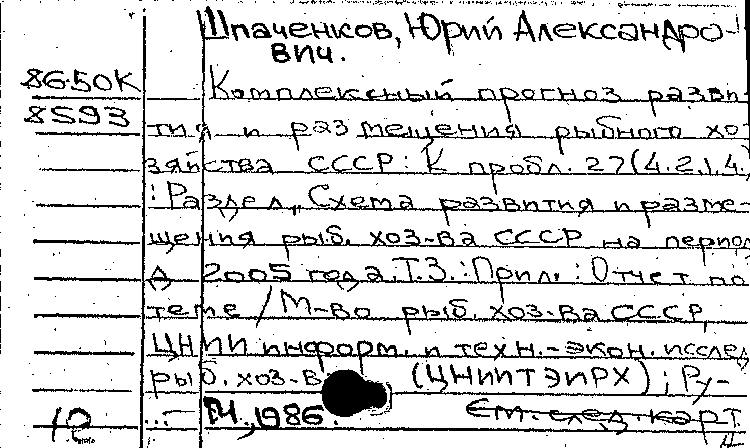 Шпаченков, Юрий Александро-
вич.
8650К Комплексный прогноз разви-
8593 тия и размещения рыбного хо-
зяйства СССР: К пробл. 27(4.2.1.4.)
: Раздел „Схема развития и разме-
щения рыб. хоз-ва СССР на перио
д 2005 года. Т.3.: Прил.: Отчет по
теме / М-во рыб. хоз-ва СССР,
ЦНИИ информ. и техн.-экон. исслед
рыб. хоз-в (ЦНИИТЭИРХ); Ру-
М., 1986. См. след. карт